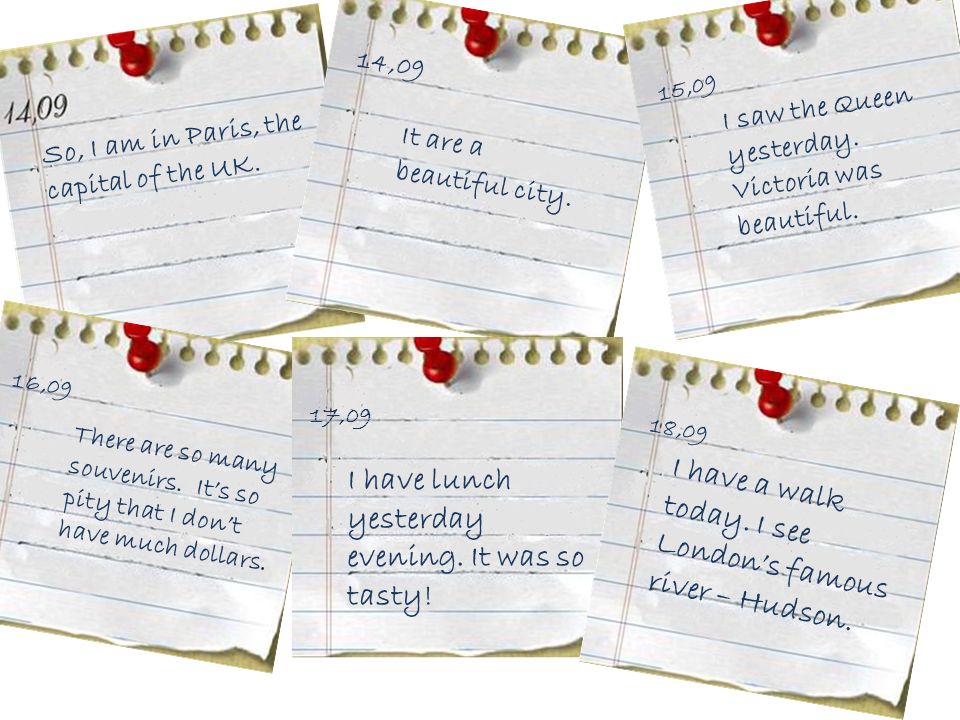 14,09
So, I am in Paris, the
capital of the UK.
14,09
It are a
beautiful city.
15,09
I saw the Queen
yesterday.
Victoria was
beautiful.
16,09
There are so many
souvenirs. It's so
pity that I don't
have much dollars.
17,09
I have lunch
yesterday
evening. It was so
tasty!
18,09
I have a walk
today. I see
London's famous
river – Hudson.